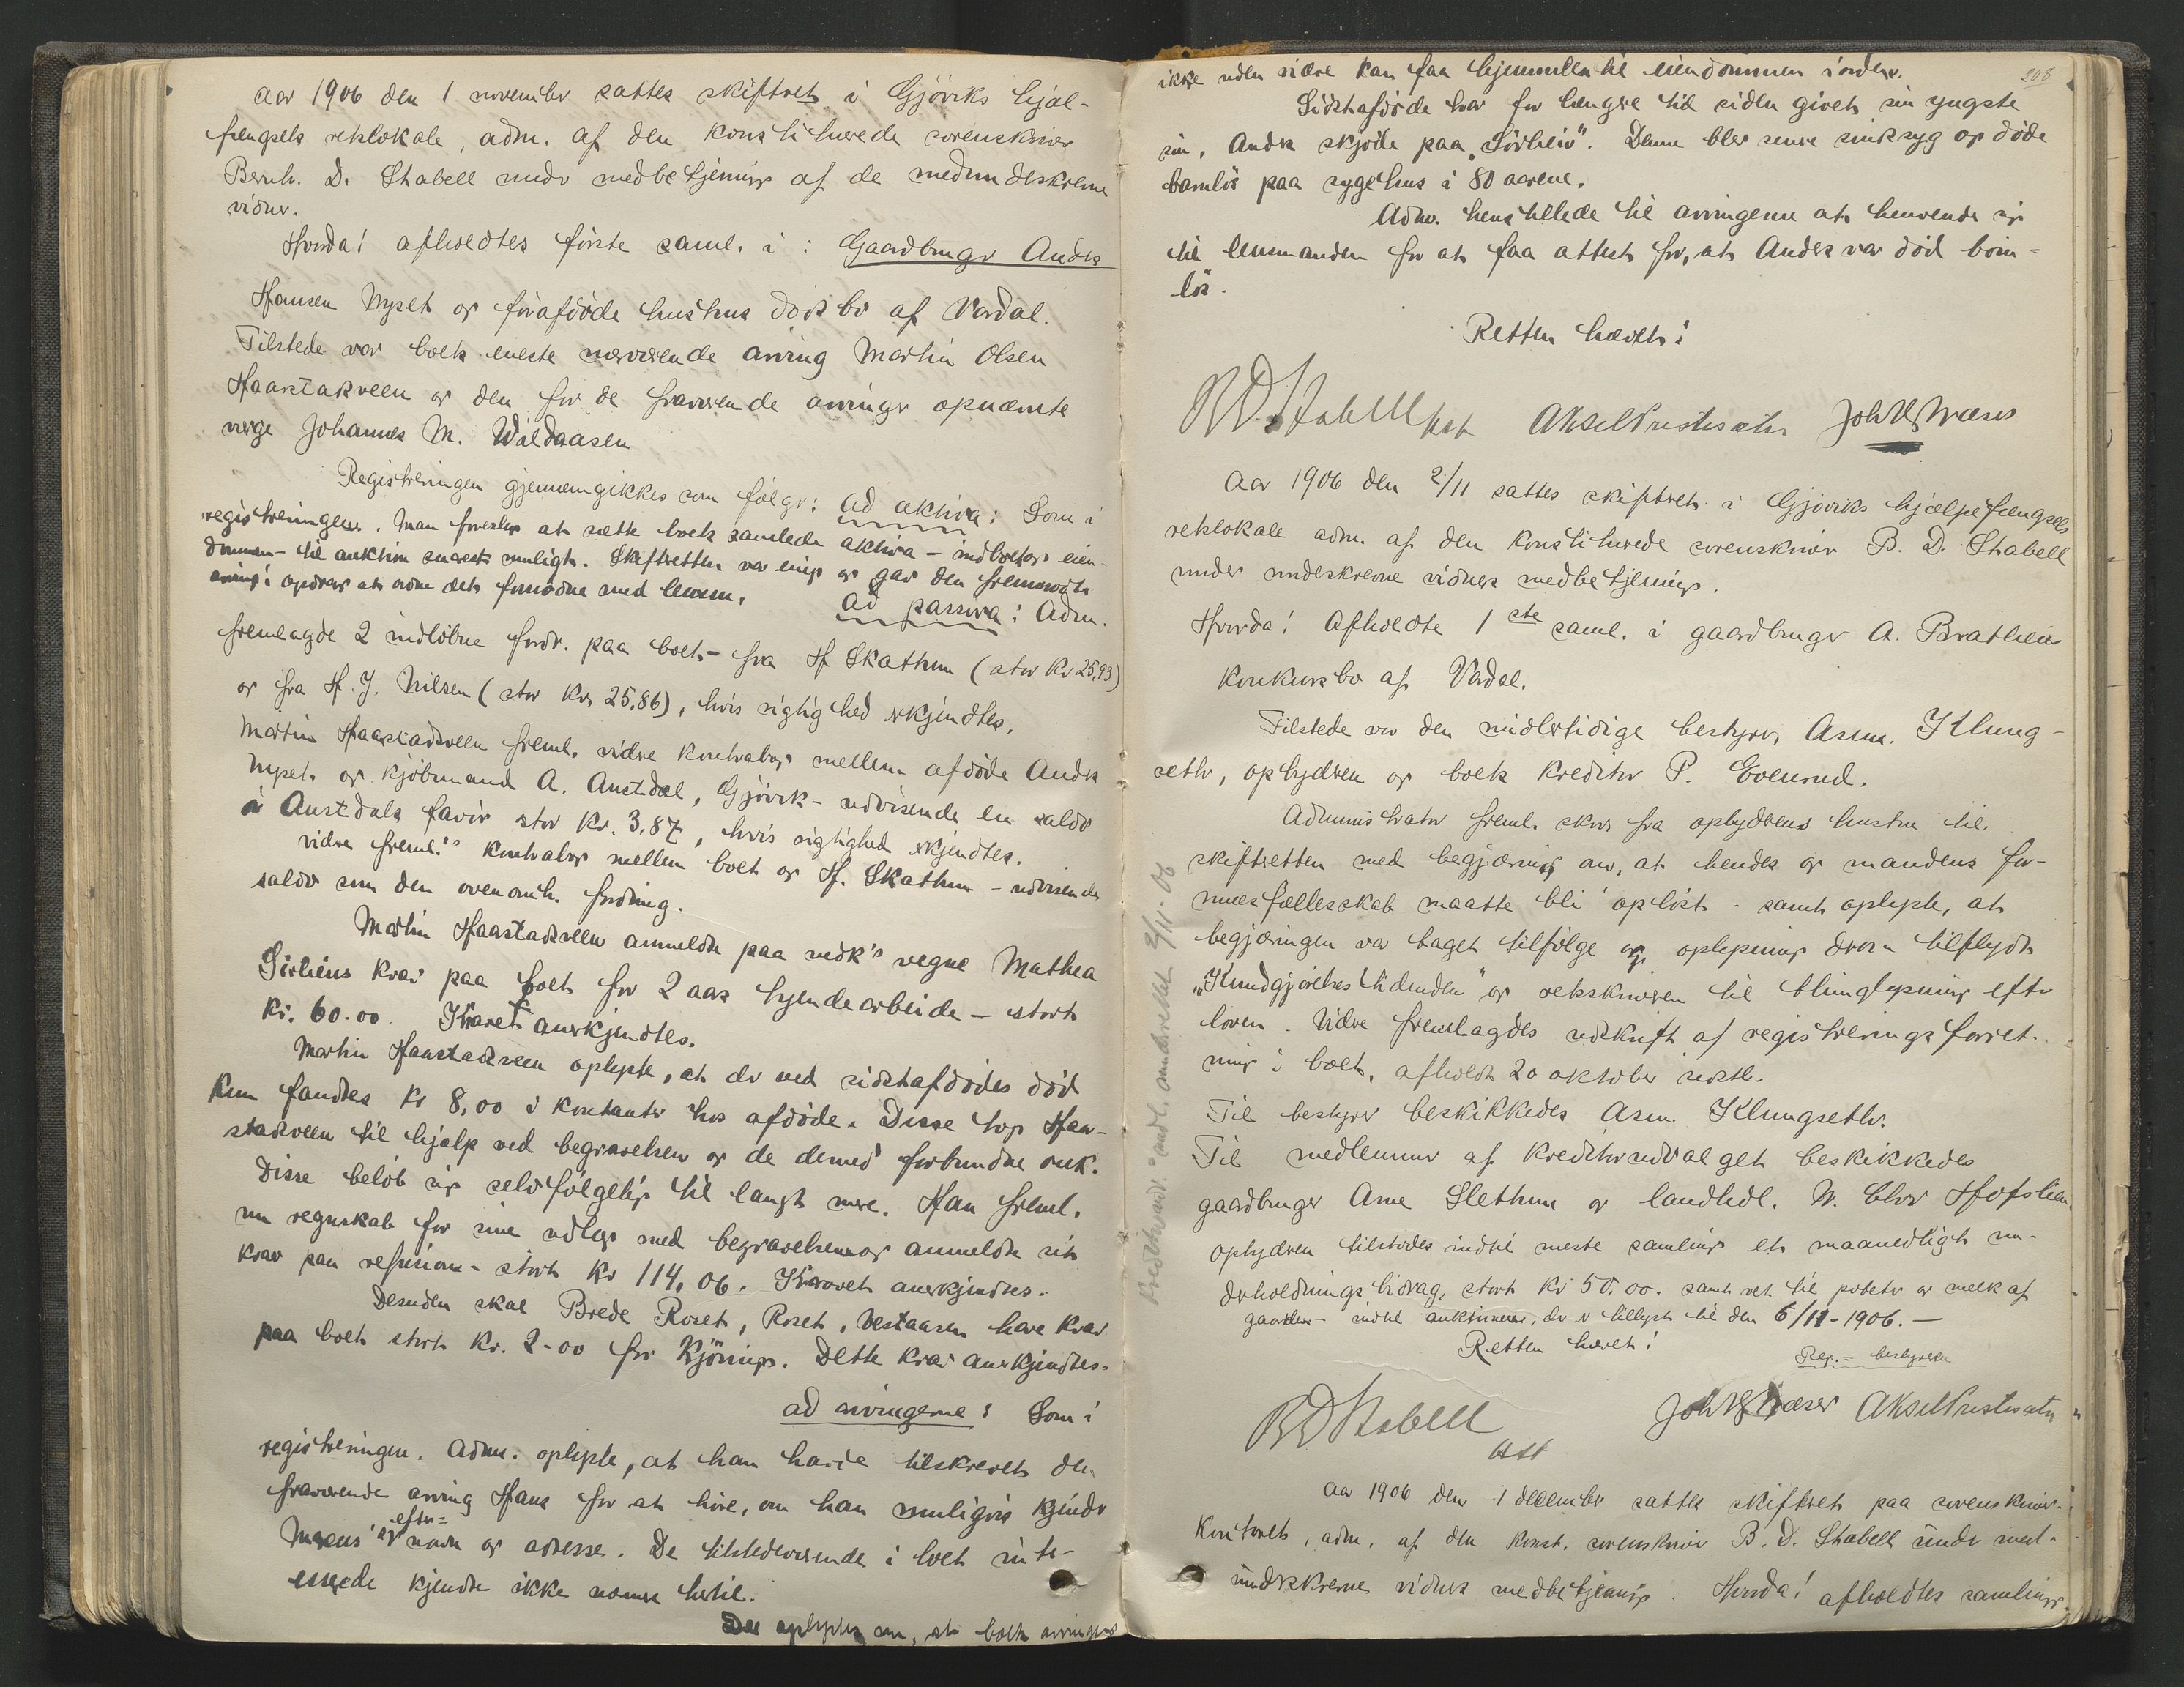 Aar 1906 den 1 november sattes skifteret i Gjøviks hjæl-
fængsels retslokale, adm. af den konstituerede sorenskriver
Bernh. D. Stabell under medbetjening af de medundeskrevne
vidner.
Hvorda! afholdtes første saml. i : Gaardbruger Anders
Hansen Nyset og førafdøde hustrus dødsbo af Vardal.
Tilstede var boets eneste nærværende arving Martin Olsen
Haarstadsveen og den for de fraværende arvinger opnævnte
verge Johannes M. Wildaasen
Registreringen gjennemgikkes som følger: ad aktiva: Som i
registreringen. Man foreslog at sætte boets samlede aktiva – indbefattet eien-
dommen – til auktion snarest muligt. Skifteretten var enig og gav den fremmødte
arving i opdrag at ordne det fornødne med lensm.
ad passiva: Adm.
fremlagde 2 indløbne fordr. paa boet – fra H. Skattum (stor Kr 25,93)
og fra H. J. Nilsen (stor Kr. 25,86), hvis rigtighed erkjendtes.
Martin Haarstadsveen freml. videre kontrabog mellem afdøde Anders
Nyset og kjøbmand A. Austdal, Gjøvik – udvisende en saldo
i Austdals favør stor Kr. 3.87, hvis rigtighed erkjendtes.
videre freml. kontrabog mellem boet og H. Skattum – udvisende
saldo som den ovenanf. fordring.
Martin Haarstadsveen anmeldte paa vedk's vegne Mathea
Sørliens krav paa boet for 2 aars tyendearbeide – stort
Kr. 60.00. Kravet anerkjendtes.
Martin Haarstadsveen oplyste, at der ved sidstafdødes død
kun fandtes Kr 8,00 i kontanter hos afdøde. Disse tog Haar-
stadsveen til hjælp ved begravelsen og de dermed forbundne omk.
Disse beløb sig selvfølgelig til langt mere. Han freml.
nu regnskab for sine udlæg med begravelsen og anmeldte sit
krav paa refusion – stort Kr 114,06. Kravet anerkjendtes.
Desuden skal Brede Roset, Roset, Vestaasen have krav
paa boet stort Kr. 2-00 for kjøring. Dette krav anerkjendtes.
ad arvingerne: Som i
registreringen. Adm. oplyste, at han havde tilskrevet den
fraværende arving Hans for at høre, om han muligvis kjendte
efter-
navn og adresse. De tilstedeværende i boet inte-
esserede kjendte ikke noget hertil.
Det oplystes nu, at boets arvinger
208
ikke uden videre kan faa hjemmelen til eiendommen i orden.
Sidstafdøde har for længere tid siden givet sin yngste
søn, Anders skjøde paa "Sørlien". Denne blev senere sindssyg og døde
barnløs paa sygehus i 80 aarene.
Adm. henstillede til arvingerne at henvende sig
til lensmanden for at faa attest for, at Anders var død barn-
løs.
Retten hævet!
B D. Stabell kst Aksel Prestesæter Joh
Aar 1906 den 2/11 sattes skifteret i Gjøviks hjælpefængsels
retslokale adm. af den konstituerede sorenskriver B. D. Stabell
under undeskrevne vidners medbetjening.
Hvorda! Afholdte 1ste saml. i gaardbruger A. Bratliens
konkursbo af Vardal.
Tilstede var den midlertidige bestyrer, Asm. Klung-
sethr, opbyderen og boets kreditor P. Evenrud.
Administrator freml. skriv fra opbyderens hustru til
skifteretten med begjæring om, at hendes og mandens for-
muesfællesskab maatte bli opløst – samt oplyste, at
begjæringen var taget tilfølge og oplysning derom tilflydt
"Kundgjørelsestidenden" og retsskriveren til thinglysning efter
loven. Videre fremlagdes udskrift af registreringsforret-
ning i boet, afholdt 20 oktober sidstl.
Til bestyrer beskikkedes Asm. Klungsethr.
Til medlemmer af kreditorudvalget beskikkedes
gaardbruger Arne Slettum og landhdl. N. Hofslien.
Opbyderen tilstodes indtil næste samling et maanedligt un-
derholdningsbidrag, stort Kr 50.00. samt ret til poteter og melk af
gaarden – indtil auktionen, der er tillyst til den 6/11-1906. –
Retten hævet!
Rep. = bestyreren
B D Stabell
kst
Joh Aksel Prestesæter
Aar 1906 den 1 december sattes skifteret paa sorenskriver-
kontoret, adm. af den konst. sorenskriver B. D. Stabell under ned-
undeskrevne vidners medbetjening. Hvorda! afholdtes samling